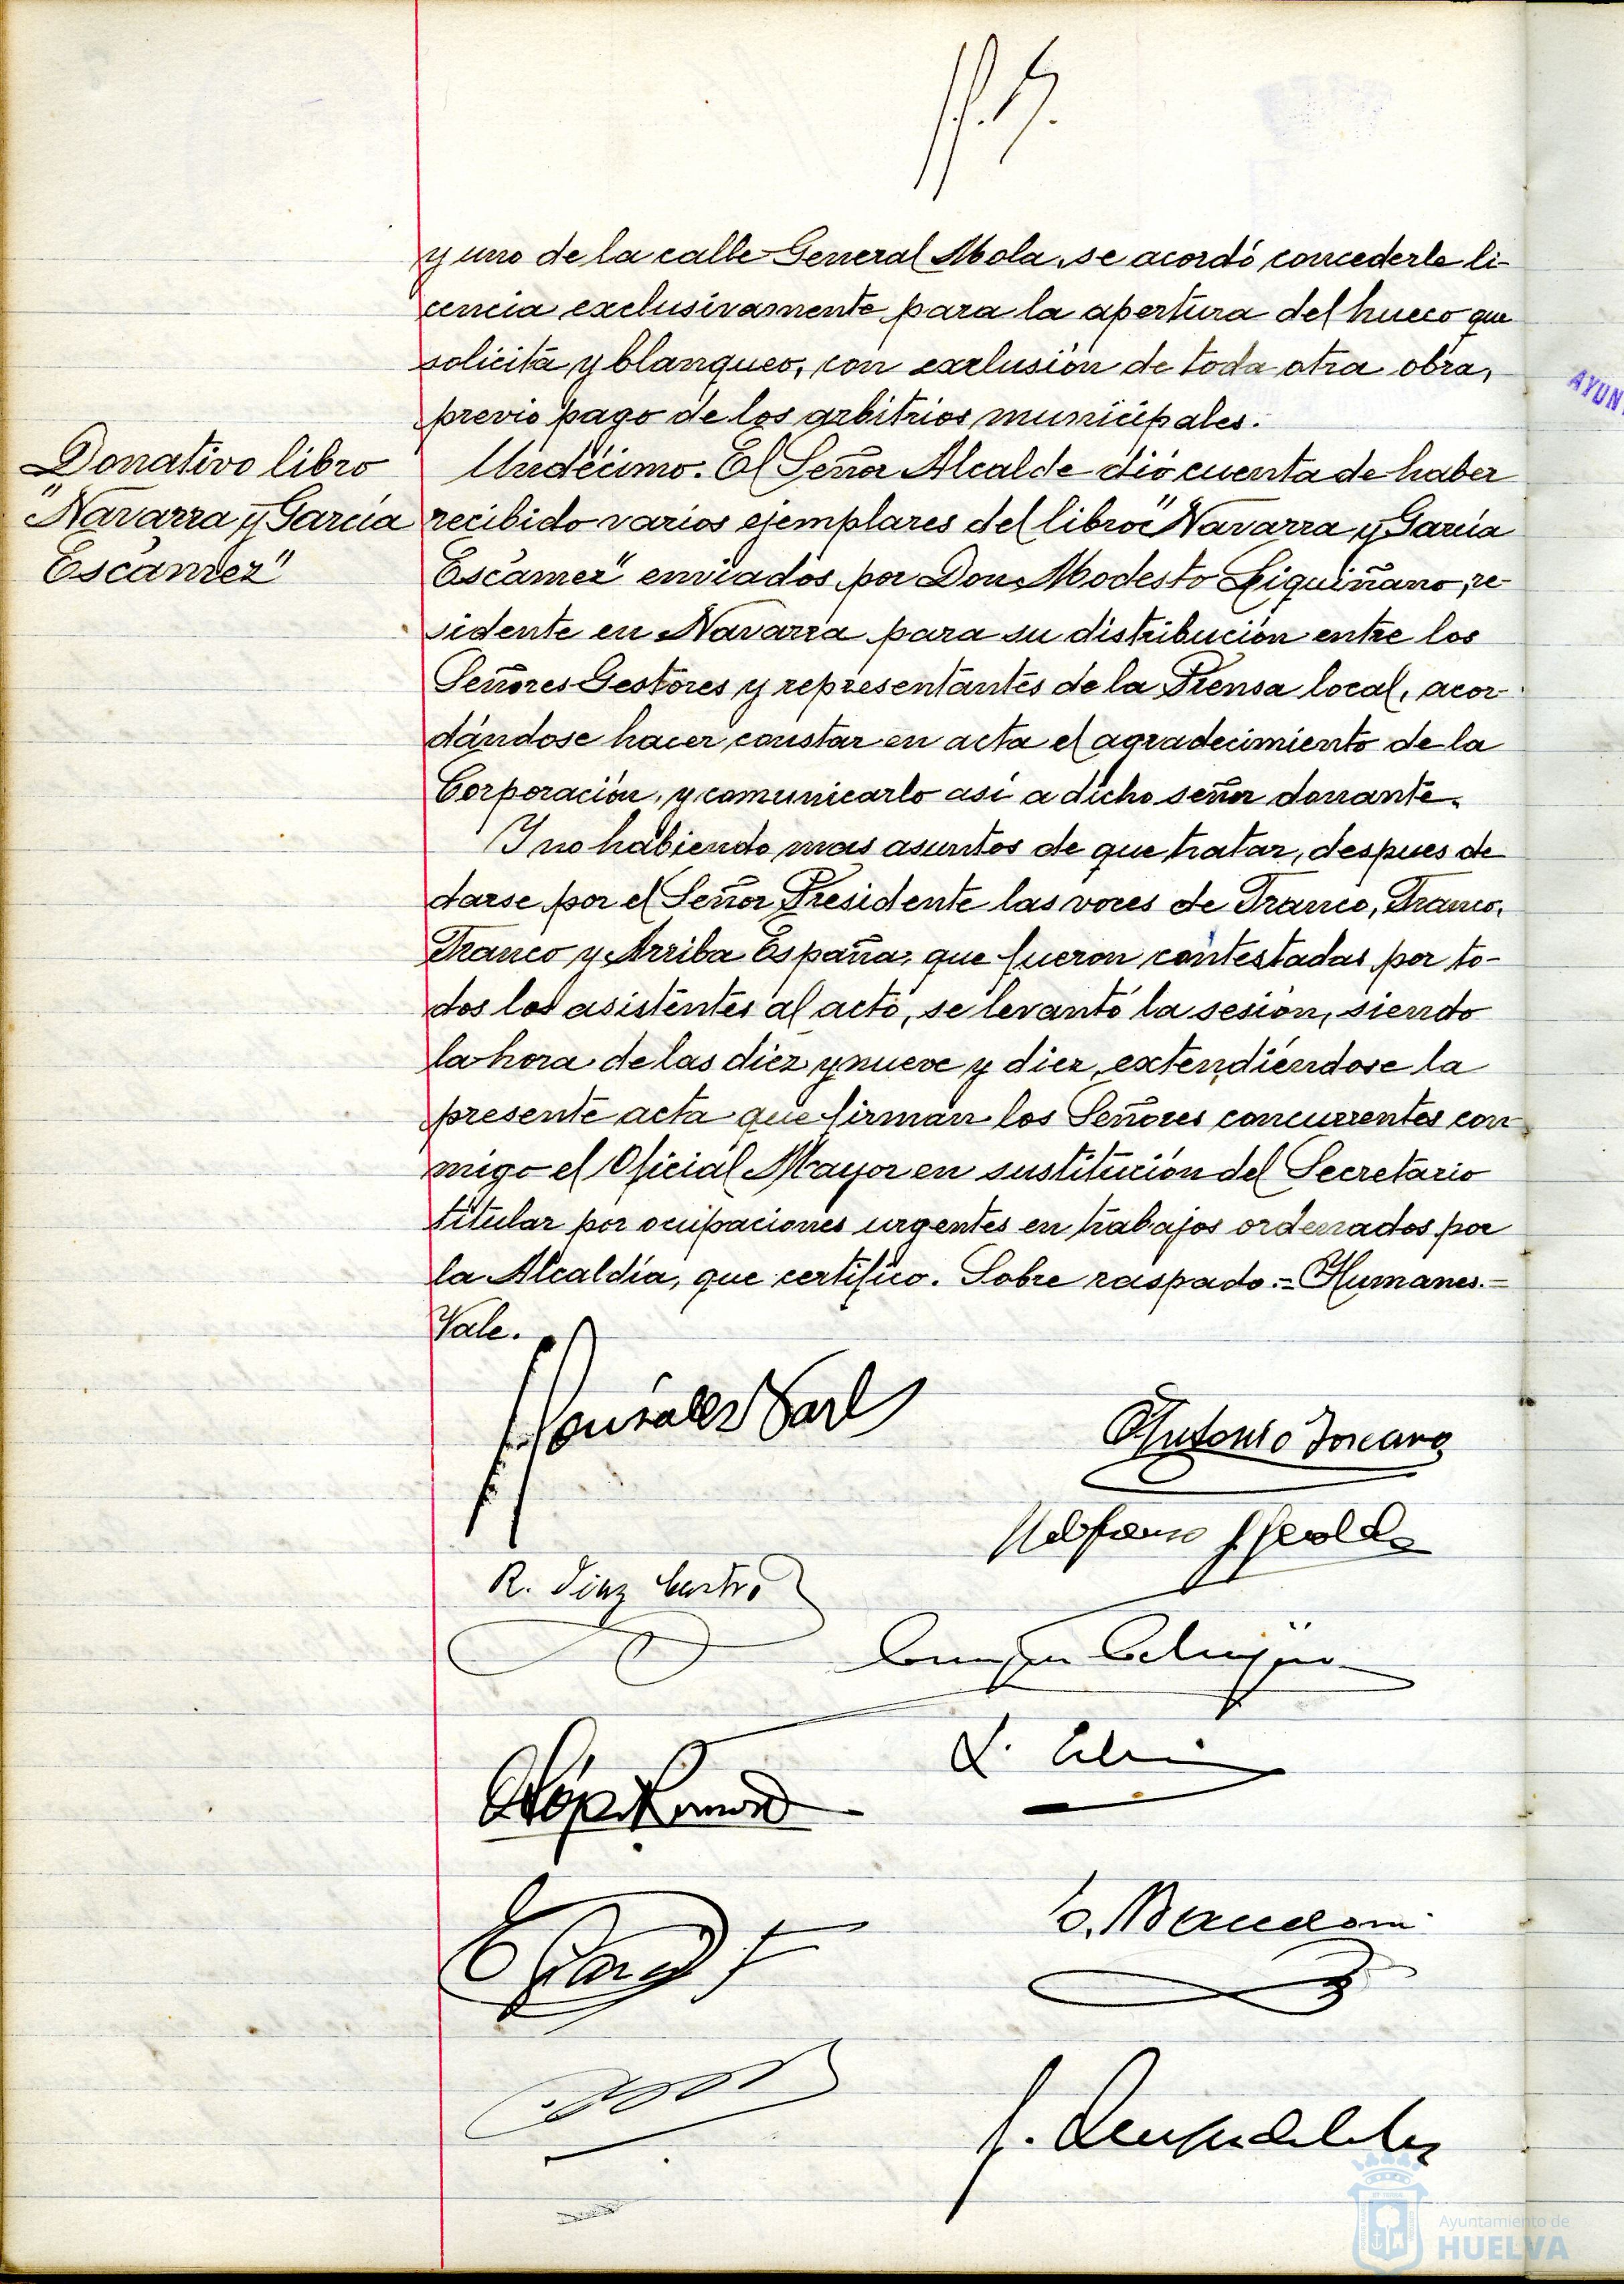 y uno de la calle General Mola, se acordó concederle li-
cencia exclusivamente para la apertura del hueco que
solicita y blanqueo, con exclusión de toda otra obra,
previo pago de los arbitrios municipales.
Donativo libro
"Navarra y García
Escámez"
Undécimo. El Señor Alcalde dió cuenta de haber
recibido varios ejemplares del libro "Navarra y García
Escámez" enviados por Don Modesto Liquiñano, re-
sidente en Navarra para su distribución entre los
Señores Gestores y representantes de la Prensa local, acor-
dándose hacer constar en acta el agradecimiento de la
Corporación, y comunicarlo así a dicho señor donante.
Y no habiendo mas asuntos de que tratar, despues de
darse por el Señor Presidente las voces de Franco, Franco,
Franco y Arriba España, que fueron contestadas por to-
dos los asistentes al acto, se levantó la sesión, siendo
la hora de las diez y nueve y diez, extendiéndose la
presente acta que firman los Señores concurrentes con
migo el Oficial Mayor en sustitución del Secretario
titular por ocupaciones urgentes en trabajos ordenados por
la Alcaldía, que certifico. Sobre raspado.- Humanes.-
Vale.
Antonio Toscano
R. Díaz Castro
AYUN
Ayuntamiento de
HUELVA